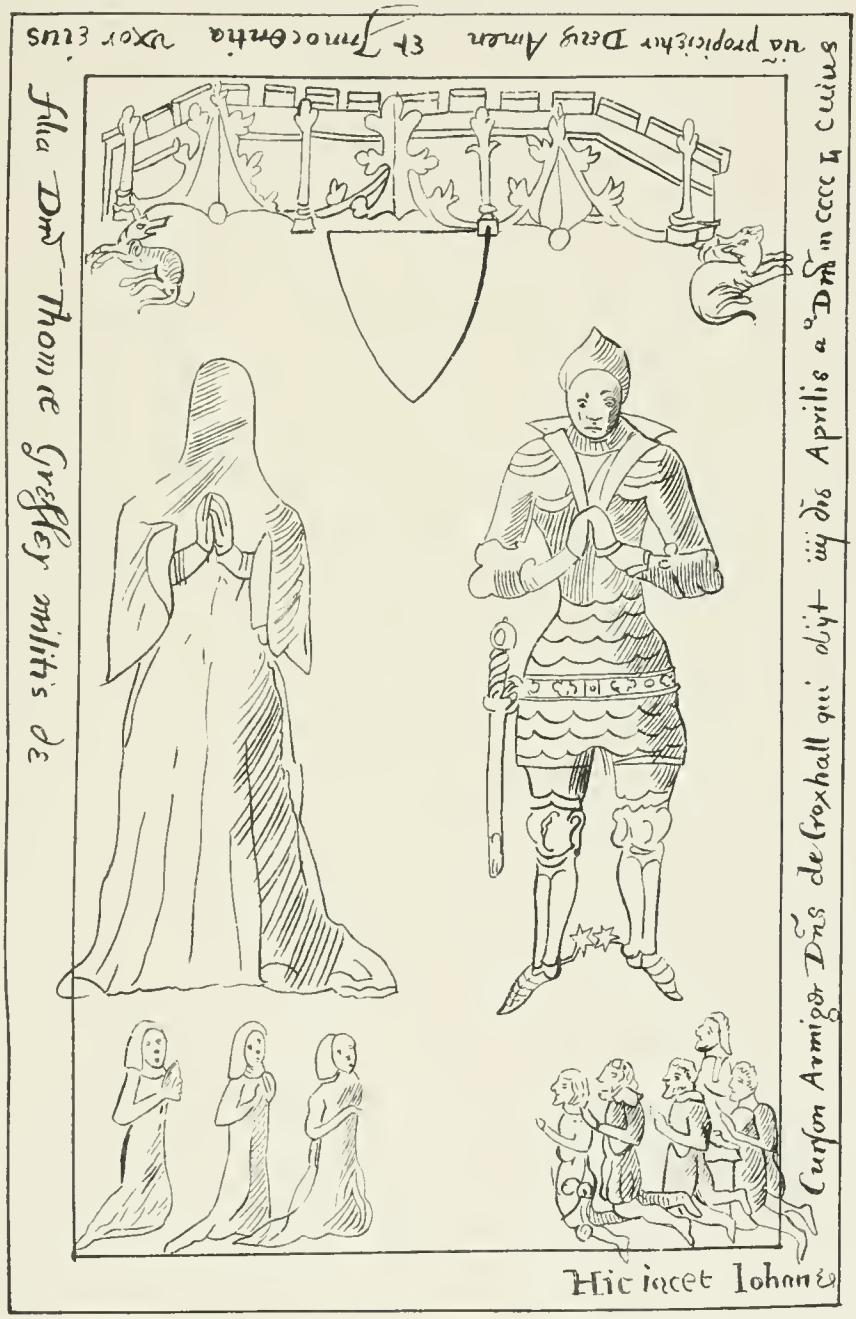 Hic iacet Iohannes
Curson Armiger Dñs de Croxhall qui obijt iiij die Aprilis a° Dñi m cccc L cuius
aiã propicietur Deus Amen Et Innocentia uxor eius
filia Dñi Thome Gresley militis de